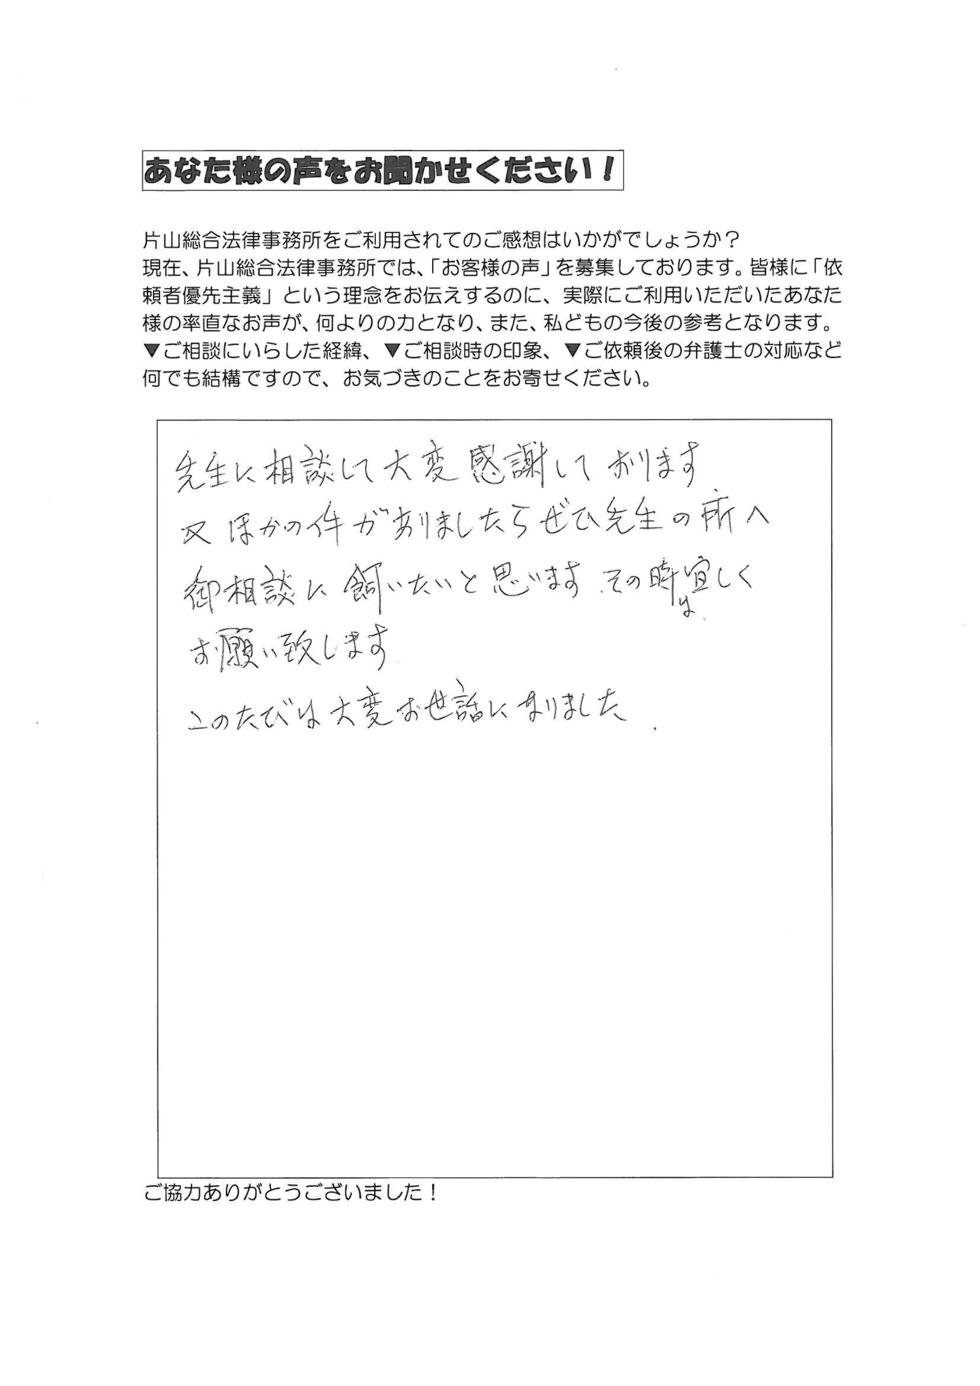 あなた様の声をお聞かせください！
片山総合法律事務所をご利用されてのご感想はいかがでしょうか？
現在、片山総合法律事務所では、「お客様の声」を募集しております。皆様に「依
頼者優先主義」という理念をお伝えするのに、実際にご利用いただいたあなた
様の率直なお声が、何よりの力となり、また、私どもの今後の参考となります。
▼ご相談にいらした経緯、▼ご相談時の印象、▼ご依頼後の弁護士の対応など
何でも結構ですので、お気づきのことをお寄せください。
先生に相談して大変感謝しております
又ほかの件がありましたらぜひ先生の所へ
御相談に飼いたいと思います.その時は宜しく
お願い致します
このたびは大変お世話になりました.
ご協力ありがとうございました！